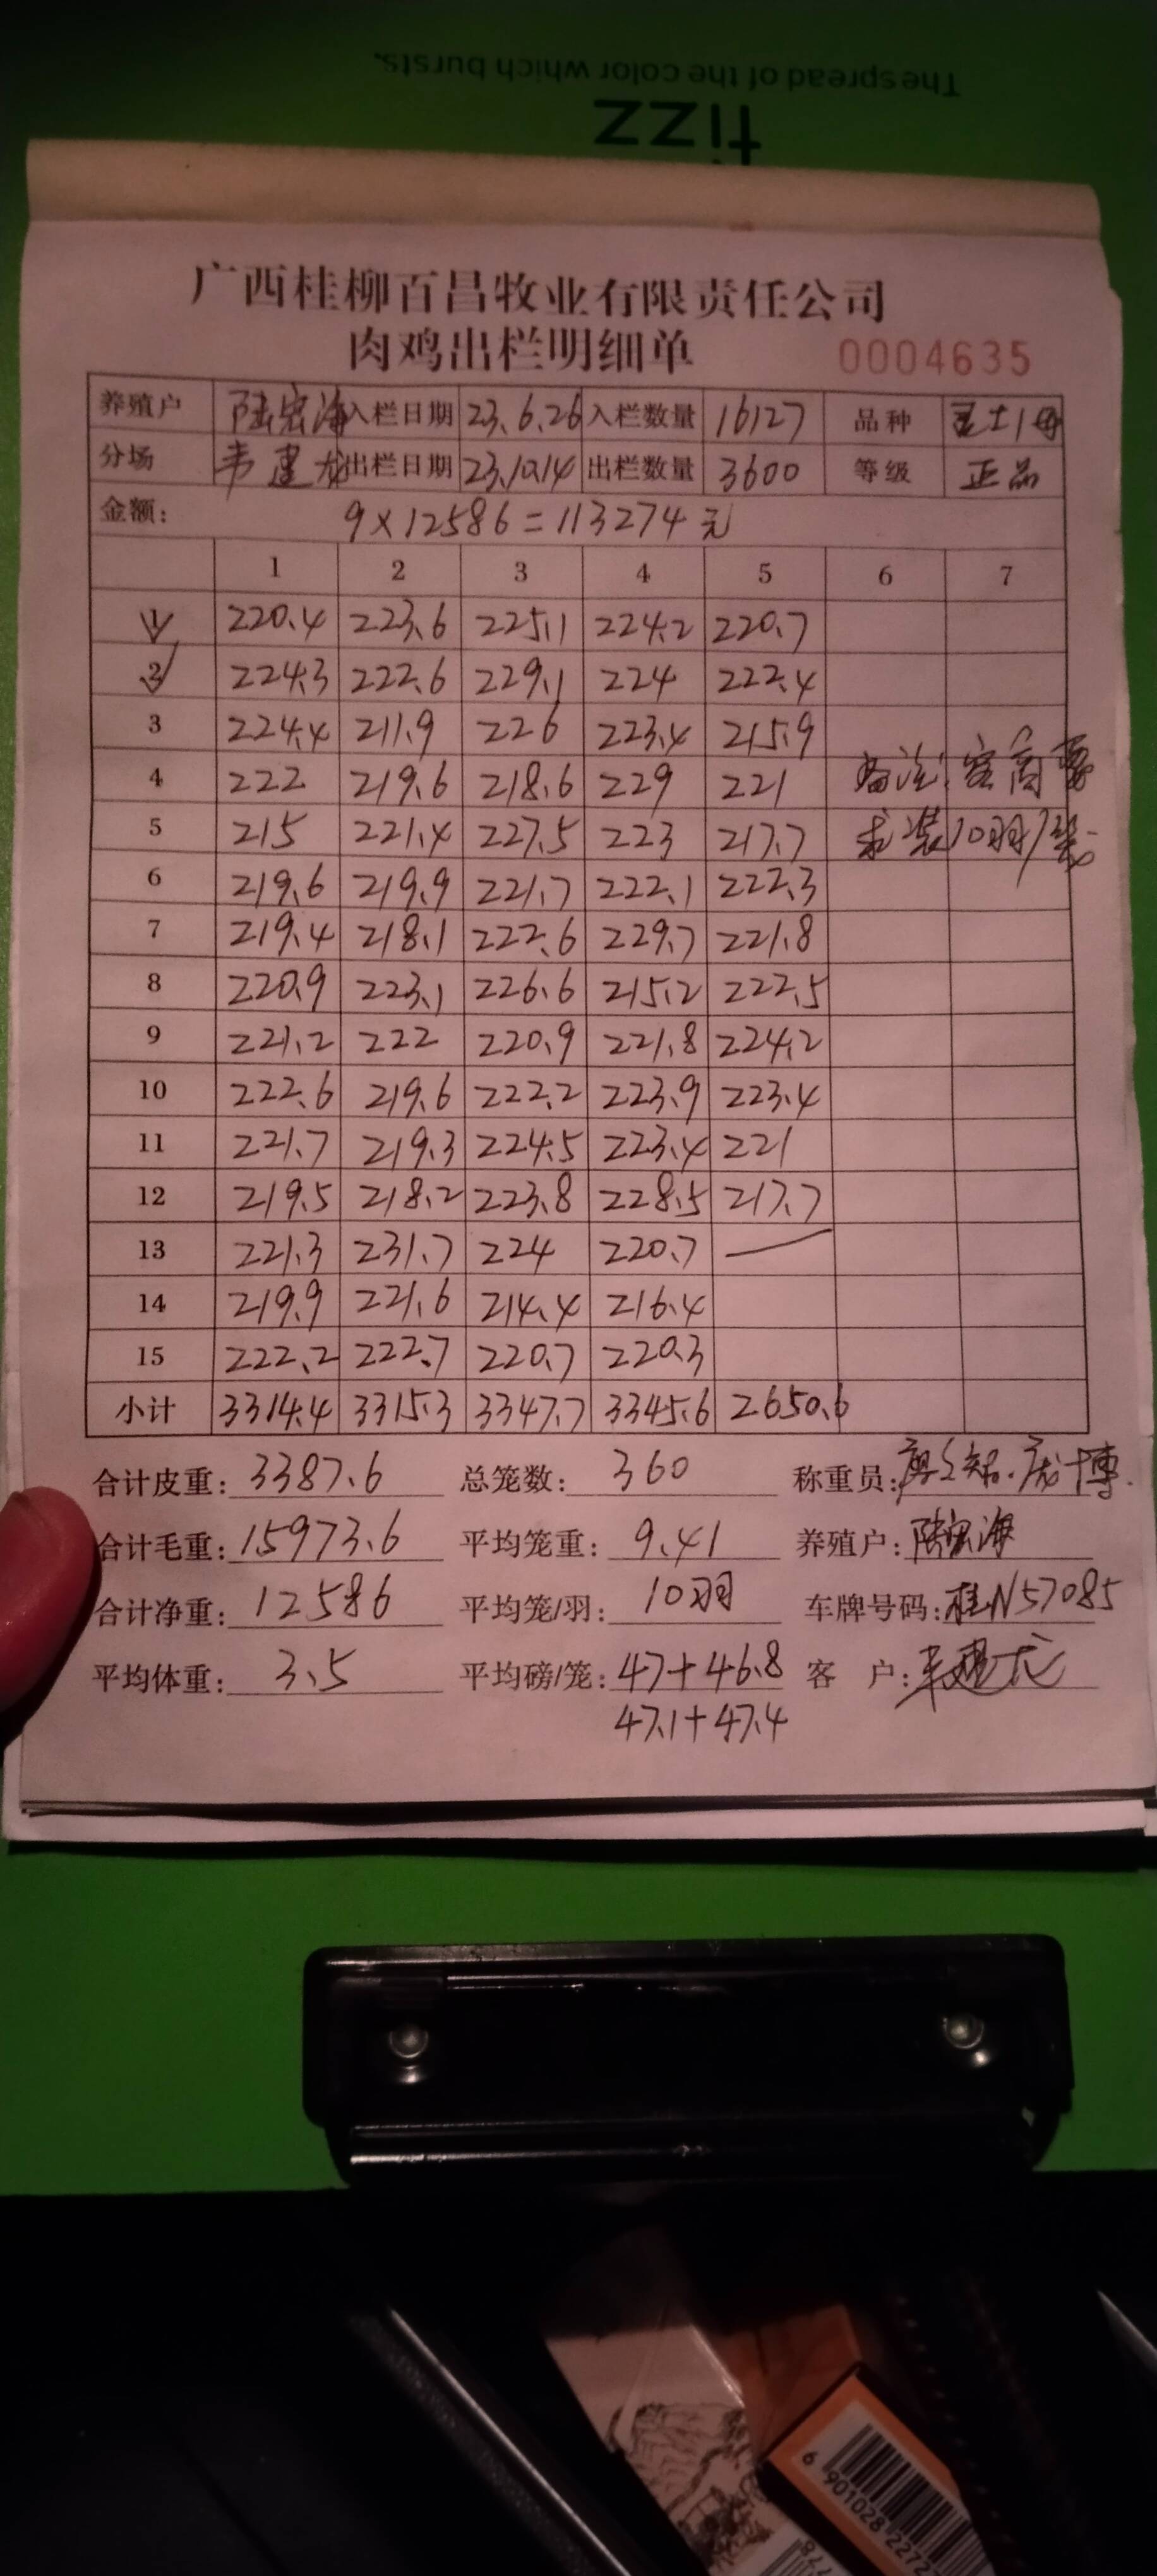 The spread of the color which bursts.
tizz
广西桂柳百昌牧业有限责任公司
肉鸡出栏明细单 0004635
养殖户 陆宏海 入栏日期 23.6.26 入栏数量 16127 品种 土1号
分场 韦建龙 出栏日期 23.10.14 出栏数量 3600 等级 正品
金额: 9×12586=113274元
1 2 3 4 5 6 7
1 220.4 223.6 225.1 224.2 220.7
2 224.3 222.6 229.1 224 222.4
3 224.4 211.9 226 223.4 215.9
4 222 219.6 218.6 229 221 备注:客商要
5 215 221.4 227.5 223 217.7 求装10羽/笼.
6 219.6 219.9 221.7 222.1 222.3
7 219.4 218.1 222.6 229.7 221.8
8 220.9 223.1 226.6 215.2 222.5
9 221.2 222 220.9 221.8 224.2
10 222.6 219.6 222.2 223.9 223.4
11 221.7 219.3 224.5 223.4 221
12 219.5 218.2 223.8 228.5 217.7
13 221.3 231.7 224 220.7
14 219.9 221.6 214.4 216.4
15 222.2 222.7 220.7 220.3
小计 3314.4 3315.3 3347.7 3345.6 2650.6
合计皮重: 3387.6 总笼数: 360 称重员:
合计毛重: 15973.6 平均笼重: 9.41 养殖户: 陆宏海
合计净重: 12586 平均笼/羽: 10羽 车牌号码: 桂N57085
平均体重: 3.5 平均磅/笼: 47+46.8 客 户: 韦建龙
47.1+47.4
6 901028 2272
78